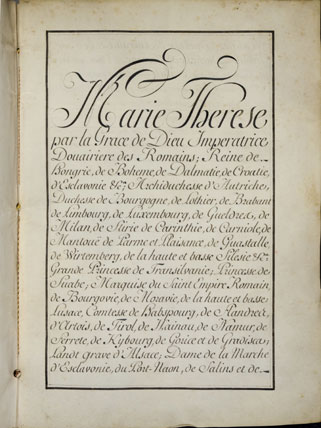 Marie Therese
par la Grace de Dieu Imperatrice
Douairiere des Romains; Reine de
Hongrie, de Boheme, de Dalmatie, de Croatie,
d'Esclavonie &c; Archiduchesse d'Autriche;
Duchesse de Bourgogne, de Lothier, de Brabant
de Limbourg, de Luxembourg, de Gueldres, de
Milan, de Stirie de Carinthie, de Carniole, de
Mantoue de Parme et Plaisance, de Guastalle,
de Wirtemberg, de la haute et basse Silesie &c.
Grande Princesse de Transilvanie; Princesse de
Suabe; Marquise du Saint Empire Romain,
de Bourgovie, de Moravie, de la haute et basse
Lusace, Comtesse de Habspourg, de Flandres,
d'Artois, de Tirol, de Hainau, de Namur, de
Ferrete, de Kybourg, de Gorice et de Gradisca;
Landgrave d'Alsace; Dame de la Marche
d'Esclavonie, du Port-Naon, de Salins et de